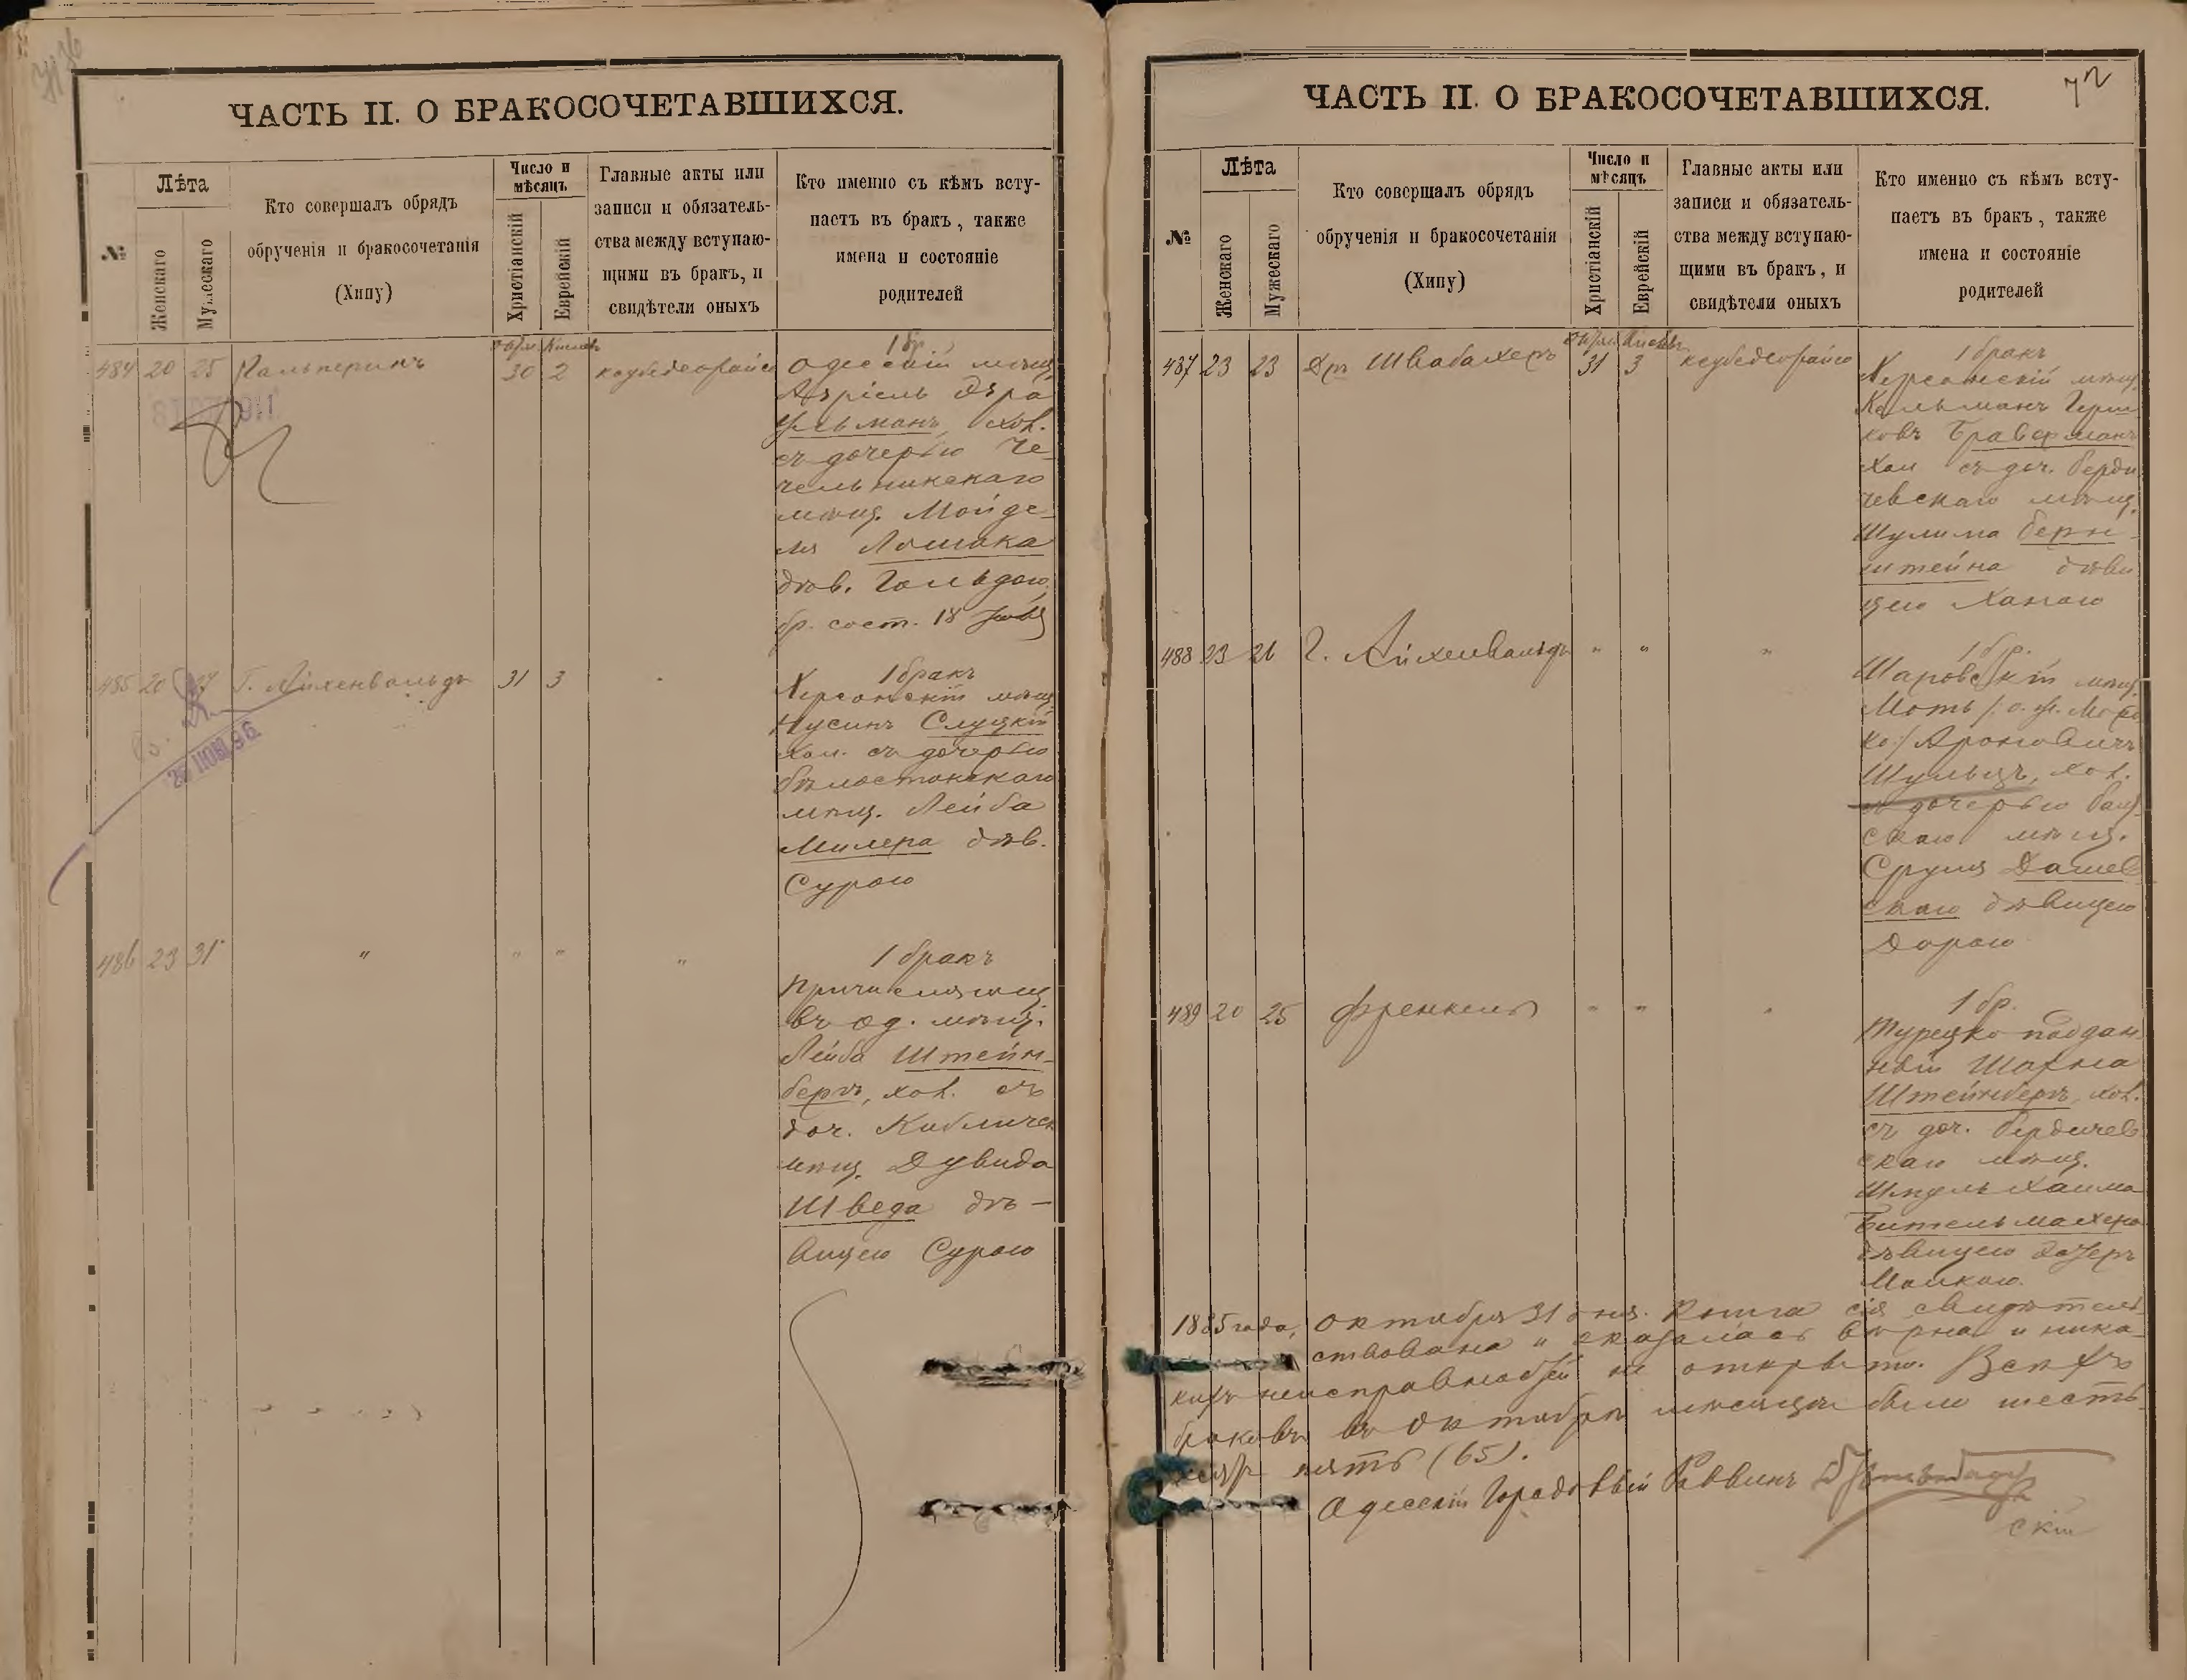 ЧАСТЬ II. О БРАКОСОЧЕТАВШИХСЯ.
№
Лѣта
Женскаго
Мужескаго
Кто совершалъ обрядъ
обрученія и бракосочетанія
(Хипу)
Число и
мѣсяцъ
Христіанскій
Еврейскій
Главные акты или
записи и обязатель-
ства между вступаю-
щими въ бракъ, и
свидѣтели оныхъ
Кто именно съ кѣмъ всту-
паетъ въ бракъ, также
имена и состояніе
родителей
484 20 25 Гальперинъ 30 2
1 бр.
Одесскій мѣщ.
хол.
съ дочерью Че-
чельникскаго
мѣщ. Мойде-
ля Лошака
дѣв. Гольдою
бр. сост. 18
485 20 Г. Айхенвальдъ 31 3
25 ІЮН. 96
1 бракъ
Херсонскій мѣщ.
Нусинъ Слуцкій
хол. съ дочерью
бѣлостокскаго
мѣщ. Лейба
Милера дѣв.
Сурою
486 23 31 " " " "
1 бракъ
въ од. мѣщ.
Лейба Штейн-
бергъ, хол. съ
доч. Кублич
мѣщ. Дувида
Шведа дѣ-
вицею Сурою
ЧАСТЬ II. О БРАКОСОЧЕТАВШИХСЯ.
72
№
Лѣта
Женскаго
Мужескаго
Кто совершалъ обрядъ
обрученія и бракосочетанія
(Хипу)
Число и
мѣсяцъ
Христіанскій
Еврейскій
Главные акты или
записи и обязатель-
ства между вступаю-
щими въ бракъ, и
свидѣтели оныхъ
Кто именно съ кѣмъ всту-
паетъ въ бракъ, также
имена и состояніе
родителей
487 23 23 Др Швабахеръ 31 3
1 бракъ
Херсонскій мѣщ.
Кельманъ Герш
ковъ Браверманъ
хол съ доч. берди
чевскаго мѣщ.
Шулима Берн-
штейна дѣви
цею Ханою
488 23 26 Г. Айхенвальдъ " " "
1 бр.
Шаровскій мѣщ.
Ароновичъ
Шульцъ, хол.
съ дочерью
скаго мѣщ.
Сруля Дашев
скаго дѣвицею
Дорою
489 20 25 Френкель " " "
1 бр.
Турецко поддан
ный
Штейнбергъ, хол.
съ доч. Бердичев
скаго мѣщ.
Шмуль Хаима
дѣвицею
Малкою
1885 года, октября 31 дня. Книга сія свидѣтель-
ствована и оказалась вѣрна и ника-
кихъ неисправностей не открыто. Всѣхъ
браковъ въ Октябрѣ мѣсяцѣ было шесть-
десятъ пять (65).
Одесскій Городовый Раввинъ
скій